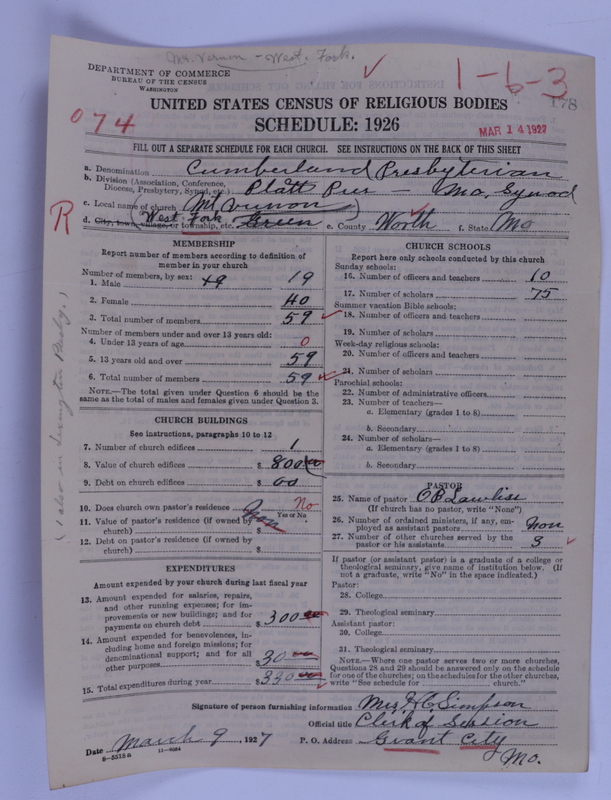 Mt. Vernon - West. Fork.
DEPARTMENT OF COMMERCE
BUREAU OF THE CENSUS
WASHINGTON
1-6-3
178
074
UNITED STATES CENSUS OF RELIGIOUS BODIES
SCHEDULE: 1926
MAR 14 1927
FILL OUT A SEPARATE SCHEDULE FOR EACH CHURCH. SEE INSTRUCTIONS ON THE BACK OF THIS SHEET
a. Denomination Cumberland Presbyterian
b. Division (Association, Conference, Diocese, Presbytery, Synod, etc.) Platt Pier - Mo, Synod
c. Local name of church Mt Vernon
R
d. City, town, village, or township, etc. (West. Fork) Green e. County Worth f. State Mo
MEMBERSHIP
Report number of members according to definition of member in your church
Number of members, by sex:
1. Male 19 19
2. Female 40
3. Total number of members 59
Number of members under and over 13 years old:
4. Under 13 years of age 0
5. 13 years old and over 59
6. Total number of members 59
NOTE.—The total given under Question 6 should be the same as the total of males and females given under Question 3.
(also in Lexington Presby.)
CHURCH BUILDINGS
See instructions, paragraphs 10 to 12
7. Number of church edifices 1
8. Value of church edifices $ 800 00
9. Debt on church edifices $ 00
10. Does church own pastor's residence No
Yes or No
11. Value of pastor's residence (if owned by church) $ non
12. Debt on pastor's residence (if owned by church) $
EXPENDITURES
Amount expended by your church during last fiscal year
13. Amount expended for salaries, repairs, and other running expenses; for improvements or new buildings; and for payments on church debt $ 300 00
14. Amount expended for benevolences, including home and foreign missions; for denominational support; and for all other purposes $ 30 00
15. Total expenditures during year $ 330 00
CHURCH SCHOOLS
Report here only schools conducted by this church
Sunday schools:
16. Number of officers and teachers 10
17. Number of scholars 75
Summer vacation Bible schools:
18. Number of officers and teachers
19. Number of scholars
Week-day religious schools:
20. Number of officers and teachers
21. Number of scholars
Parochial schools:
22. Number of administrative officers
23. Number of teachers—
a. Elementary (grades 1 to 8)
b. Secondary
24. Number of scholars—
a. Elementary (grades 1 to 8)
b. Secondary
PASTOR
25. Name of pastor O B Lawliss
(If church has no pastor, write "None")
26. Number of ordained ministers, if any, employed as assistant pastors non
27. Number of other churches served by the pastor or his assistants 3
If pastor (or assistant pastor) is a graduate of a college or theological seminary, give name of institution below. (If not a graduate, write "No" in the space indicated.)
Pastor:
28. College
29. Theological seminary
Assistant pastor:
30. College
31. Theological seminary
NOTE.—Where one pastor serves two or more churches, Questions 28 and 29 should be answered only on the schedule for one of the churches; on the schedules for the other churches, write "See schedule for church."
Signature of person furnishing information Mrs H C Simpson
Official title Clerk of Session
Date March 9, 1927 P. O. Address Grant City
Mo.
8-5518a 11-9084